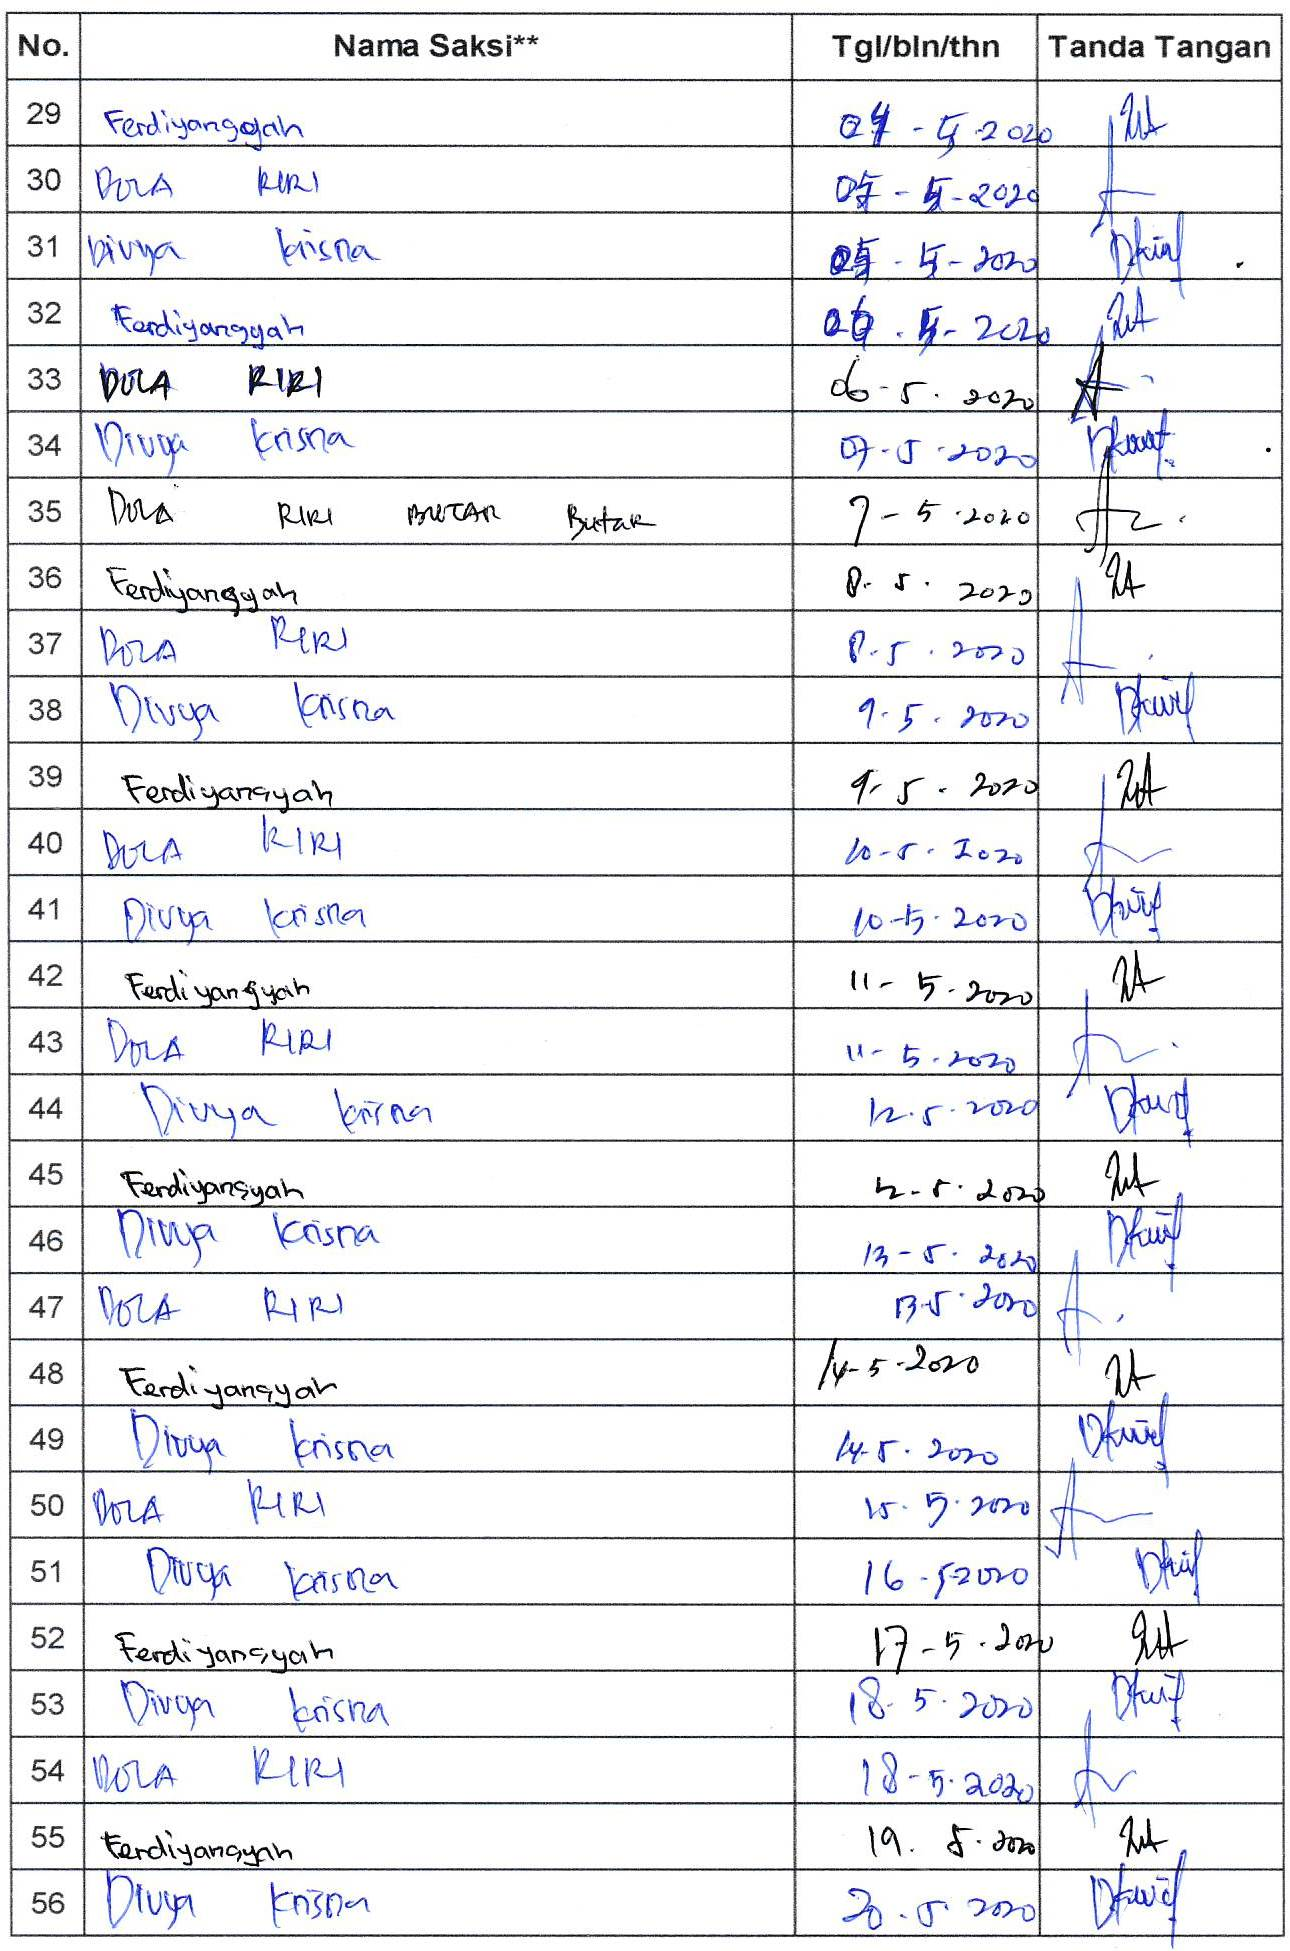 No. Nama Saksi** Tgl/bln/thn Tanda Tangan
29 Ferdiyangsyah 04 - 5 - 2020
30 DOLA RIRI 05 - 5 - 2020
31 Divya Krisna 05 - 5 - 2020
32 Ferdiyangyah 06 - 5 - 2020
33 DOLA RIRI 06 - 5 . 2020
34 Divya Krisna 07 - 5 - 2020
35 DOLA RIRI BUTAR Butar 7 - 5 . 2020
36 Ferdiyangyah 8 . 5 . 2020
37 DOLA RIRI 8 . 5 . 2020
38 Divya Krisna 9 . 5 . 2020
39 Ferdiyansyah 9 . 5 . 2020
40 DOLA RIRI 10 - 5 . 2020
41 Divya Krisna 10 - 5 . 2020
42 Ferdiyansyah 11 - 5 . 2020
43 DOLA RIRI 11 - 5 . 2020
44 Divya Krisna 12 . 5 . 2020
45 Ferdiyansyah 12 - 5 . 2020
46 Divya Krisna 13 - 5 . 2020
47 DOLA RIRI 13 - 5 . 2020
48 Ferdiyansyah 14 - 5 - 2020
49 Divya Krisna 14 - 5 . 2020
50 DOLA RIRI 15 . 5 . 2020
51 Divya Krisna 16 - 5 - 2020
52 Ferdiyansyah 17 - 5 . 2020
53 Divya Krisna 18 . 5 . 2020
54 DOLA RIRI 18 - 5 . 2020
55 Ferdiyansyah 19 . 5 . 2020
56 Divya Krisna 20 . 5 . 2020